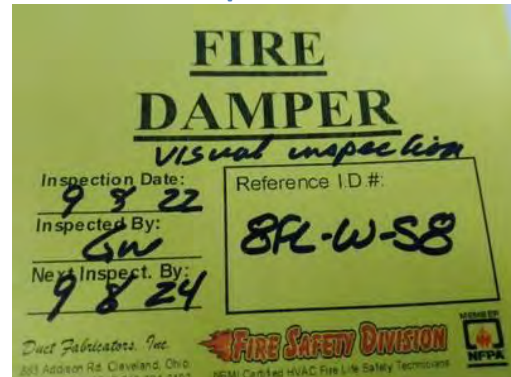 FIRE
DAMPER
visual inspection
Inspection Date:
9 8 22
Inspected By:
GW
Next Inspect. By:
9 8 24
Reference I.D.#:
8FL-W-S8
Duct Fabricators, Inc.
883 Addison Rd. Cleveland, Ohio
FIRE SAFETY DIVISION
NEMI Certified HVAC Fire Life Safety Technicians
MEMBER
NFPA